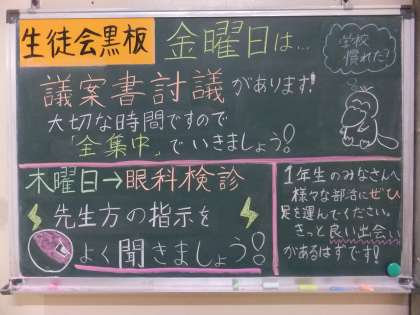 生徒会黒板
金曜日は…
議案書討議があります!
大切な時間ですので
「全集中」でいきましょう!
学校
慣れた?
木曜日→眼科検診
先生方の指示を
よく聞きましょう!
1年生のみなさんへ
様々な部活にぜひ
足を運んでください。
きっと良い出会い
があるはずです!